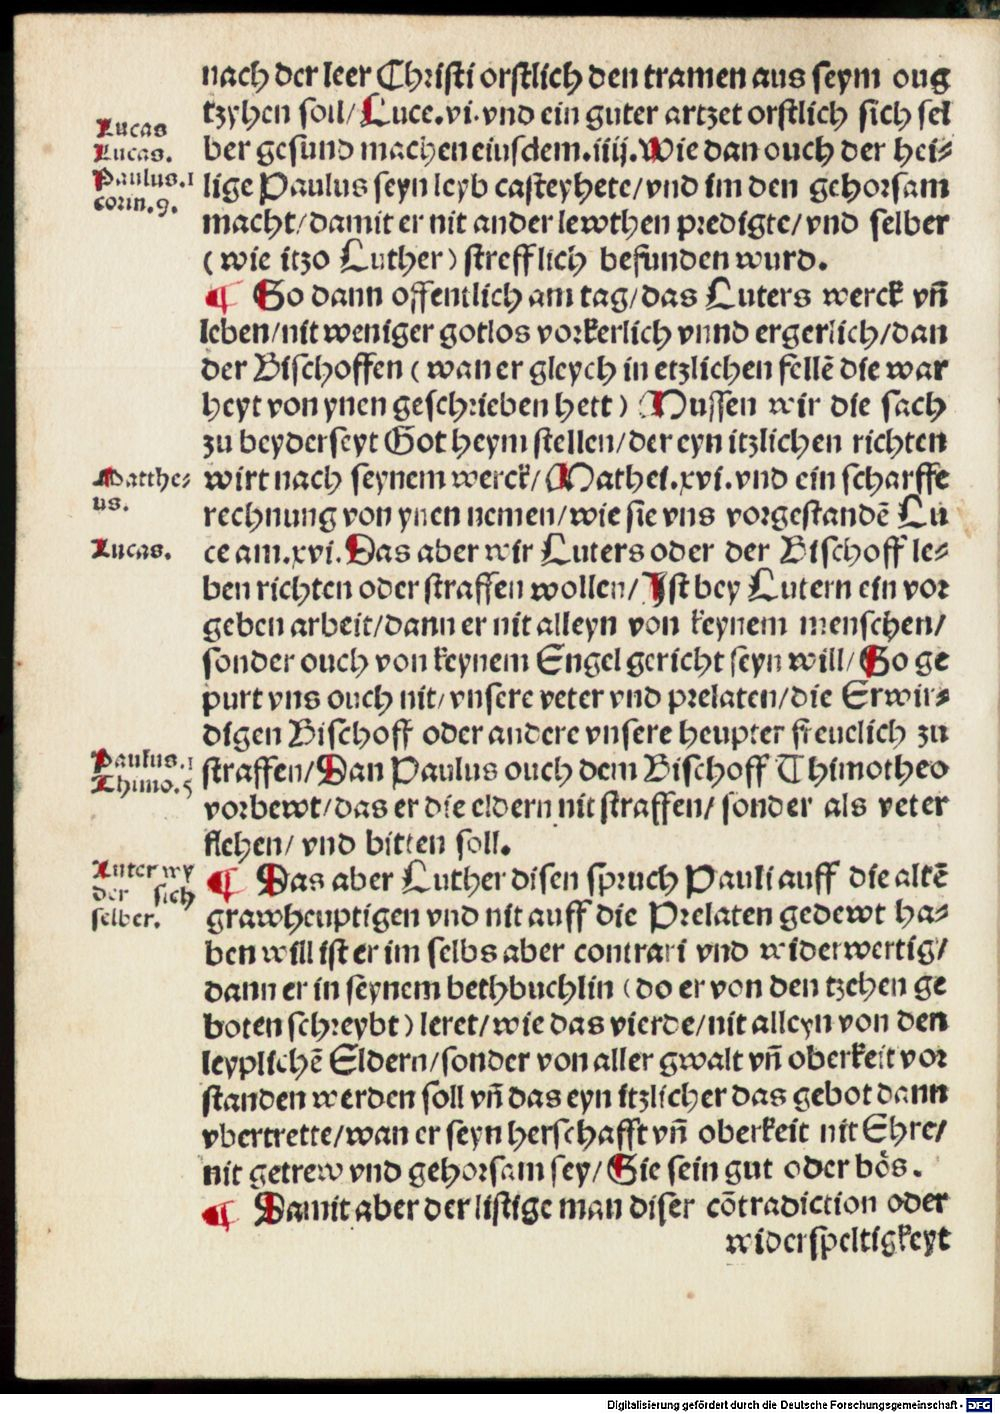 nach der leer Christi orstlich den tramen aus seym oug
tzyhen soll/ Luce.vi.vnd ein guter artzet orstlich sich sel
Lucas
Lucas.
ber gesund machen eiusdem.iiij. Wie dan ouch der hei⸗
Paulus.1
corin.9.
lige Paulus seyn leyb casteyhete/vnd im den gehorsam
macht/damit er nit ander lewthen predigte/vnd selber
(wie itzo Luther) strefflich befunden wurd.
¶ So dann offentlich am tag/das Luters werck vn̄
leben/nit weniger gotlos vorkerlich vnnd ergerlich/dan
der Bischoffen (wan er gleych in etzlichen fellē die war
heyt von ynen geschrieben hett) Mussen wir die sach
zu beyderseyt Got heym stellen/der eyn itzlichen richten
Matthe⸗
us.
wirt nach seynem werck/Mathei.xvi.vnd ein scharffe
rechnung von ynen nemen/wie sie vns vorgestandē Lu
Lucas.
ce am.xvi. Das aber wir Luters oder der Bischoff le⸗
ben richten oder straffen wollen/Ist bey Lutern ein vor
geben arbeit/dann er nit alleyn von keynem menschen/
sonder ouch von keynem Engel gericht seyn will/So ge
purt vns ouch nit/vnsere veter vnd prelaten/die Erwir⸗
digen Bischoff oder andere vnsere heupter freuelich zu
Paulus.1
Thimo.5
straffen/Dan Paulus ouch dem Bischoff Thimotheo
vorbewt/das er die eldern nit straffen/ sonder als veter
flehen/ vnd bitten soll.
Luter wy
der sich
selber.
¶ Das aber Luther disen spruch Pauli auff die altē
grawheuptigen vnd nit auff die Prelaten gedewt ha⸗
ben will ist er im selbs aber contrari vnd widerwertig/
dann er in seynem bethbuchlin (do er von den tzehen ge
boten schreybt) leret/wie das vierde/nit alleyn von den
leyplichē Eldern/sonder von aller gwalt vn̄ oberkeit vor
standen werden soll vn̄ das eyn itzlicher das gebot dann
vbertrette/wan er seyn herschafft vn̄ oberkeit nit Ehre/
nit getrew vnd gehorsam sey/Sie sein gut oder bös.
¶ Damit aber der listige man diser cōtradiction oder
widerspeltigkeyt
Digitalisierung gefördert durch die Deutsche Forschungsgemeinschaft - DFG